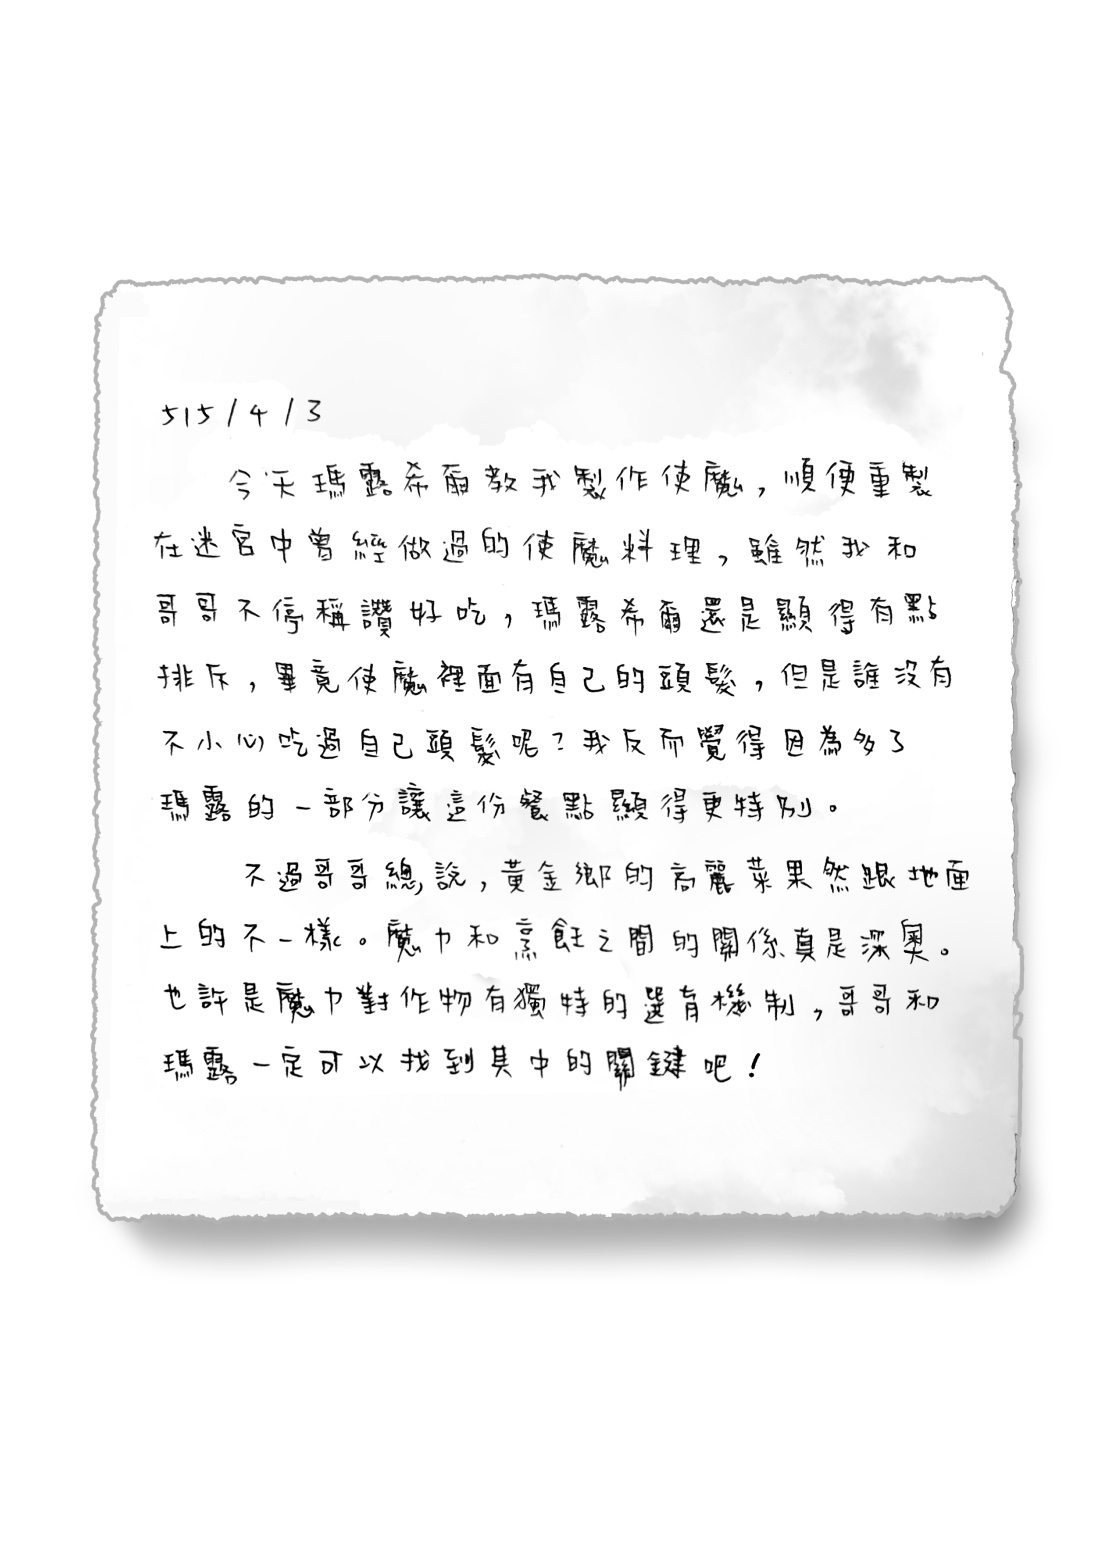 515/4/3
今天瑪露希爾教我製作使魔，順便重製
在迷宮中曾經做過的使魔料理，雖然我和
哥哥不停稱讚好吃，瑪露希爾還是顯得有點
排斥，畢竟使魔裡面有自己的頭髮，但是誰沒有
不小心吃過自己頭髮呢？我反而覺得因為多了
瑪露的一部分讓這份餐點顯得更特別。
不過哥哥總說，黃金鄉的高麗菜果然跟地面
上的不一樣。魔力和烹飪之間的關係真是深奧。
也許是魔力對作物有獨特的選育機制，哥哥和
瑪露一定可以找到其中的關鍵吧！